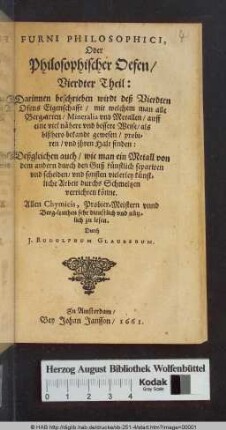 FURNI PHILOSOPHICI,
Oder
Philosophischer Oefen/
Vierdter Theil:
Darinnen beschrieben wirdt deß Vierdten
Ofens Eigenschafft / wie welchem man alle
Bergarten / Mineralia und Metallen / auff
eine viel nähere und bessere Weise / als
bißhero bekandt gewesen / probi-
ren / und ihren Halt finden:
Deßgleichen auch / wie man ein Metall von
dem andern durch den Guß künstlich separiren
und scheiden / und sonsten vielerley künst-
liche Arbeit durchs Schmeltzen
verrichten könne.
Allen Chymicis, Probier-Meistern und
Berg-leuthen sehr dienstlich und nütz-
lich zu lesen.
Durch
J. RODOLPHUM GLAUBERUM.
Zu Amsterdam /
Bey Johan Jansson / 1661.
Herzog August Bibliothek Wolfenbüttel
Kodak
Gray Scale
© HAB